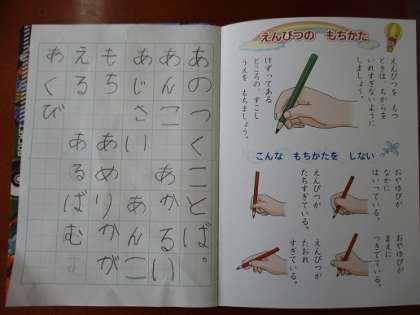 えんぴつの もちかた
えんぴつを もつ
ときは、ちからを
いれすぎないように
しましょう。
けずってある
ところの、すこし
うえを もちましょう。
こんな もちかたを しない
おやゆびが
なかに
はいっている。
えんぴつが
たちすぎている。
おやゆびが
まえに
つきでている。
えんぴつが
たおれ
すぎている。
あのつくことば。
あんこ あかるい
あじさい あんこ
もち あめりかが
える あるばむ
あくび